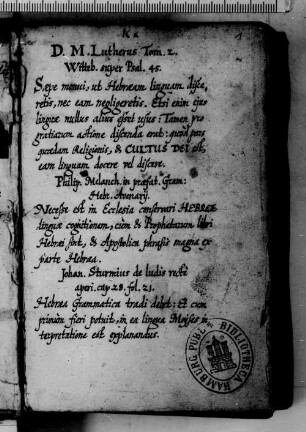 D. M. Lutherus Tom. 2.
Witteb. super Psal. 45.
Sæpe monui, ut Hebræam linguam disce,
retis, nec eam negligeretis. Etsi enim ejus
linguæ nullus alius esset usus: Tamen pro
gratiarum actione discenda erat: quod pars
quædam Religionis, & CULTUS DEI est,
eam linguam docere vel discere.
Philip. Melanch. in præfat. Gram:
Hebr. Avenarij.
Necesse est in Ecclesia conservari HEBRÆÆ
linguæ cognitionem, cum & Prophetarum libri
Hebræi sint, & Apostolica phrasis magna ex
parte Hebræa.
Johan. Sturmius de ludis rectè
aperi. cap 28. fol. 21.
Hebræa Grammatica tradi debet: Et cum
primùm fieri potuit, in ea lingua Moyses in
terpretatione est explanandus.
HAMBURG. PUBL. BIBLIOTHECA